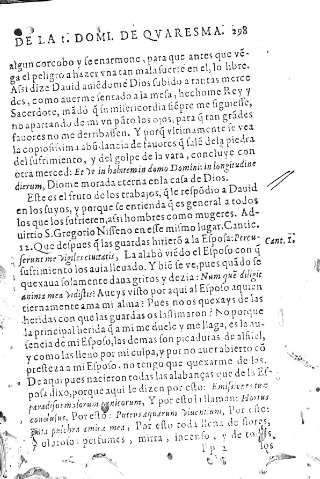 DE LA 1. DOMI. DE QVARESMA. 298
algun corcobo y se enarmone, para que antes que vē-
ga el peligro a hazer vna tan mala suerte en el, lo libre.
Assi dize David aviēdome Dios subido a tantas merce
des, como averme sentado a la mesa, hechome Rey y
Sacerdote, mādó q̄ su misericordia siēpre me siguiesse,
no apartando de mi vn pūto los ojos, para q̄ tan grādes
favores no me derribassen. Y porq̄ vltimamente se vea
la copiosissima abūdancia de favores q̄ sale de la piedra
del sufrimiento, y del golpe de la vara, concluye con
otra merced: Et vt in habitem in domo Domini: in longitudine
dierum, Diome morada eterna en la casa de Dios.
Este es el fruto de los trabajos, q̄ le respōdio a David
en los suyos, y porque se entienda q̄ es general a todos
los que los sufrieren, assi hombres como mugeres. Ad-
uirtio S. Gregorio Nisseno en esse mismo lugar. Cantic.
12. Que despues q̄ las guardas hirierō a la Esposa: Percu-
serunt me vigiles ciuitatis, La alabò viēdo el Esposo con q̄
Cant. 5.
sufrimiento los auia lleuado. Y biē se ve, pues quādo se
quexaua solamente daua gritos y dezia: Num quē diligit
anima mea vidistis? Aueys visto por aqui al Esposo a quien
tiernamente ama mi alma? Pues no os quexays de las
heridas con que las guardas os lastimaron? No porque
la principal herida q̄ a mi me duele y me llaga, es la au-
sencia de mi Esposo, las demas son picaduras de alfilel,
y como las lleuo por mi culpa, y por no auer abierto cō
presteza a mi Esposo, no tengo que quexarme de las.
De aqui pues nacieron todas las alabanças que de la Es-
posa dixo, porque aqui le dizen por esto: Emissiones tuæ
paradisus malorum punicorum, Y por esto la llaman: Hortus
conclusus. Por esto: Puteus aquarum viuentium, Por esto:
pulchra amica mea, Por esto toda llena de flores,
y oloroso: perfumes, mirra, incienso, y de todos
Pp 2 los